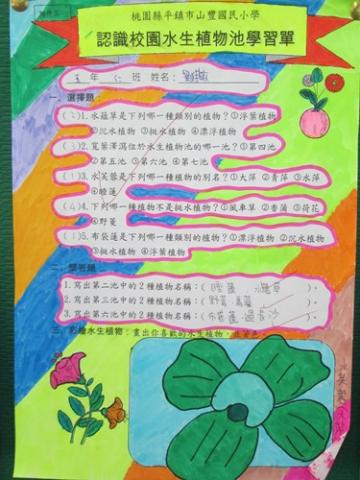 桃園縣平鎮市山豐國民小學
認識校園水生植物池學習單
五 年 仁 班 姓名：
一、選擇題：
( )1.水蘊草是下列哪一種類別的植物？①浮葉植物
②沉水植物 ③挺水植物 ④漂浮植物
( )2.寬葉澤瀉位於水生植物池的哪一池？①第四池
②第五池 ③第六池 ④第七池
( )3.水芙蓉是下列哪一種植物的別名？①大萍 ②青萍 ③水萍
④睡蓮
( )4.下列哪一種植物不是挺水植物？①風車草 ②香蒲 ③荷花
④野菱
( )5.布袋蓮是下列哪一種類別的植物？①漂浮植物 ②沉水植物
③挺水植物 ④浮葉植物
二、簡答題
1.寫出第二池中的2種植物名稱：(睡蓮、水蘊草)。
2.寫出第三池中的2種植物名稱：(野菱、
3.寫出第六池中的2種植物名稱：(布袋蓮、過長沙)
三、彩繪水生植物：畫出你喜歡的水生植物，並著色